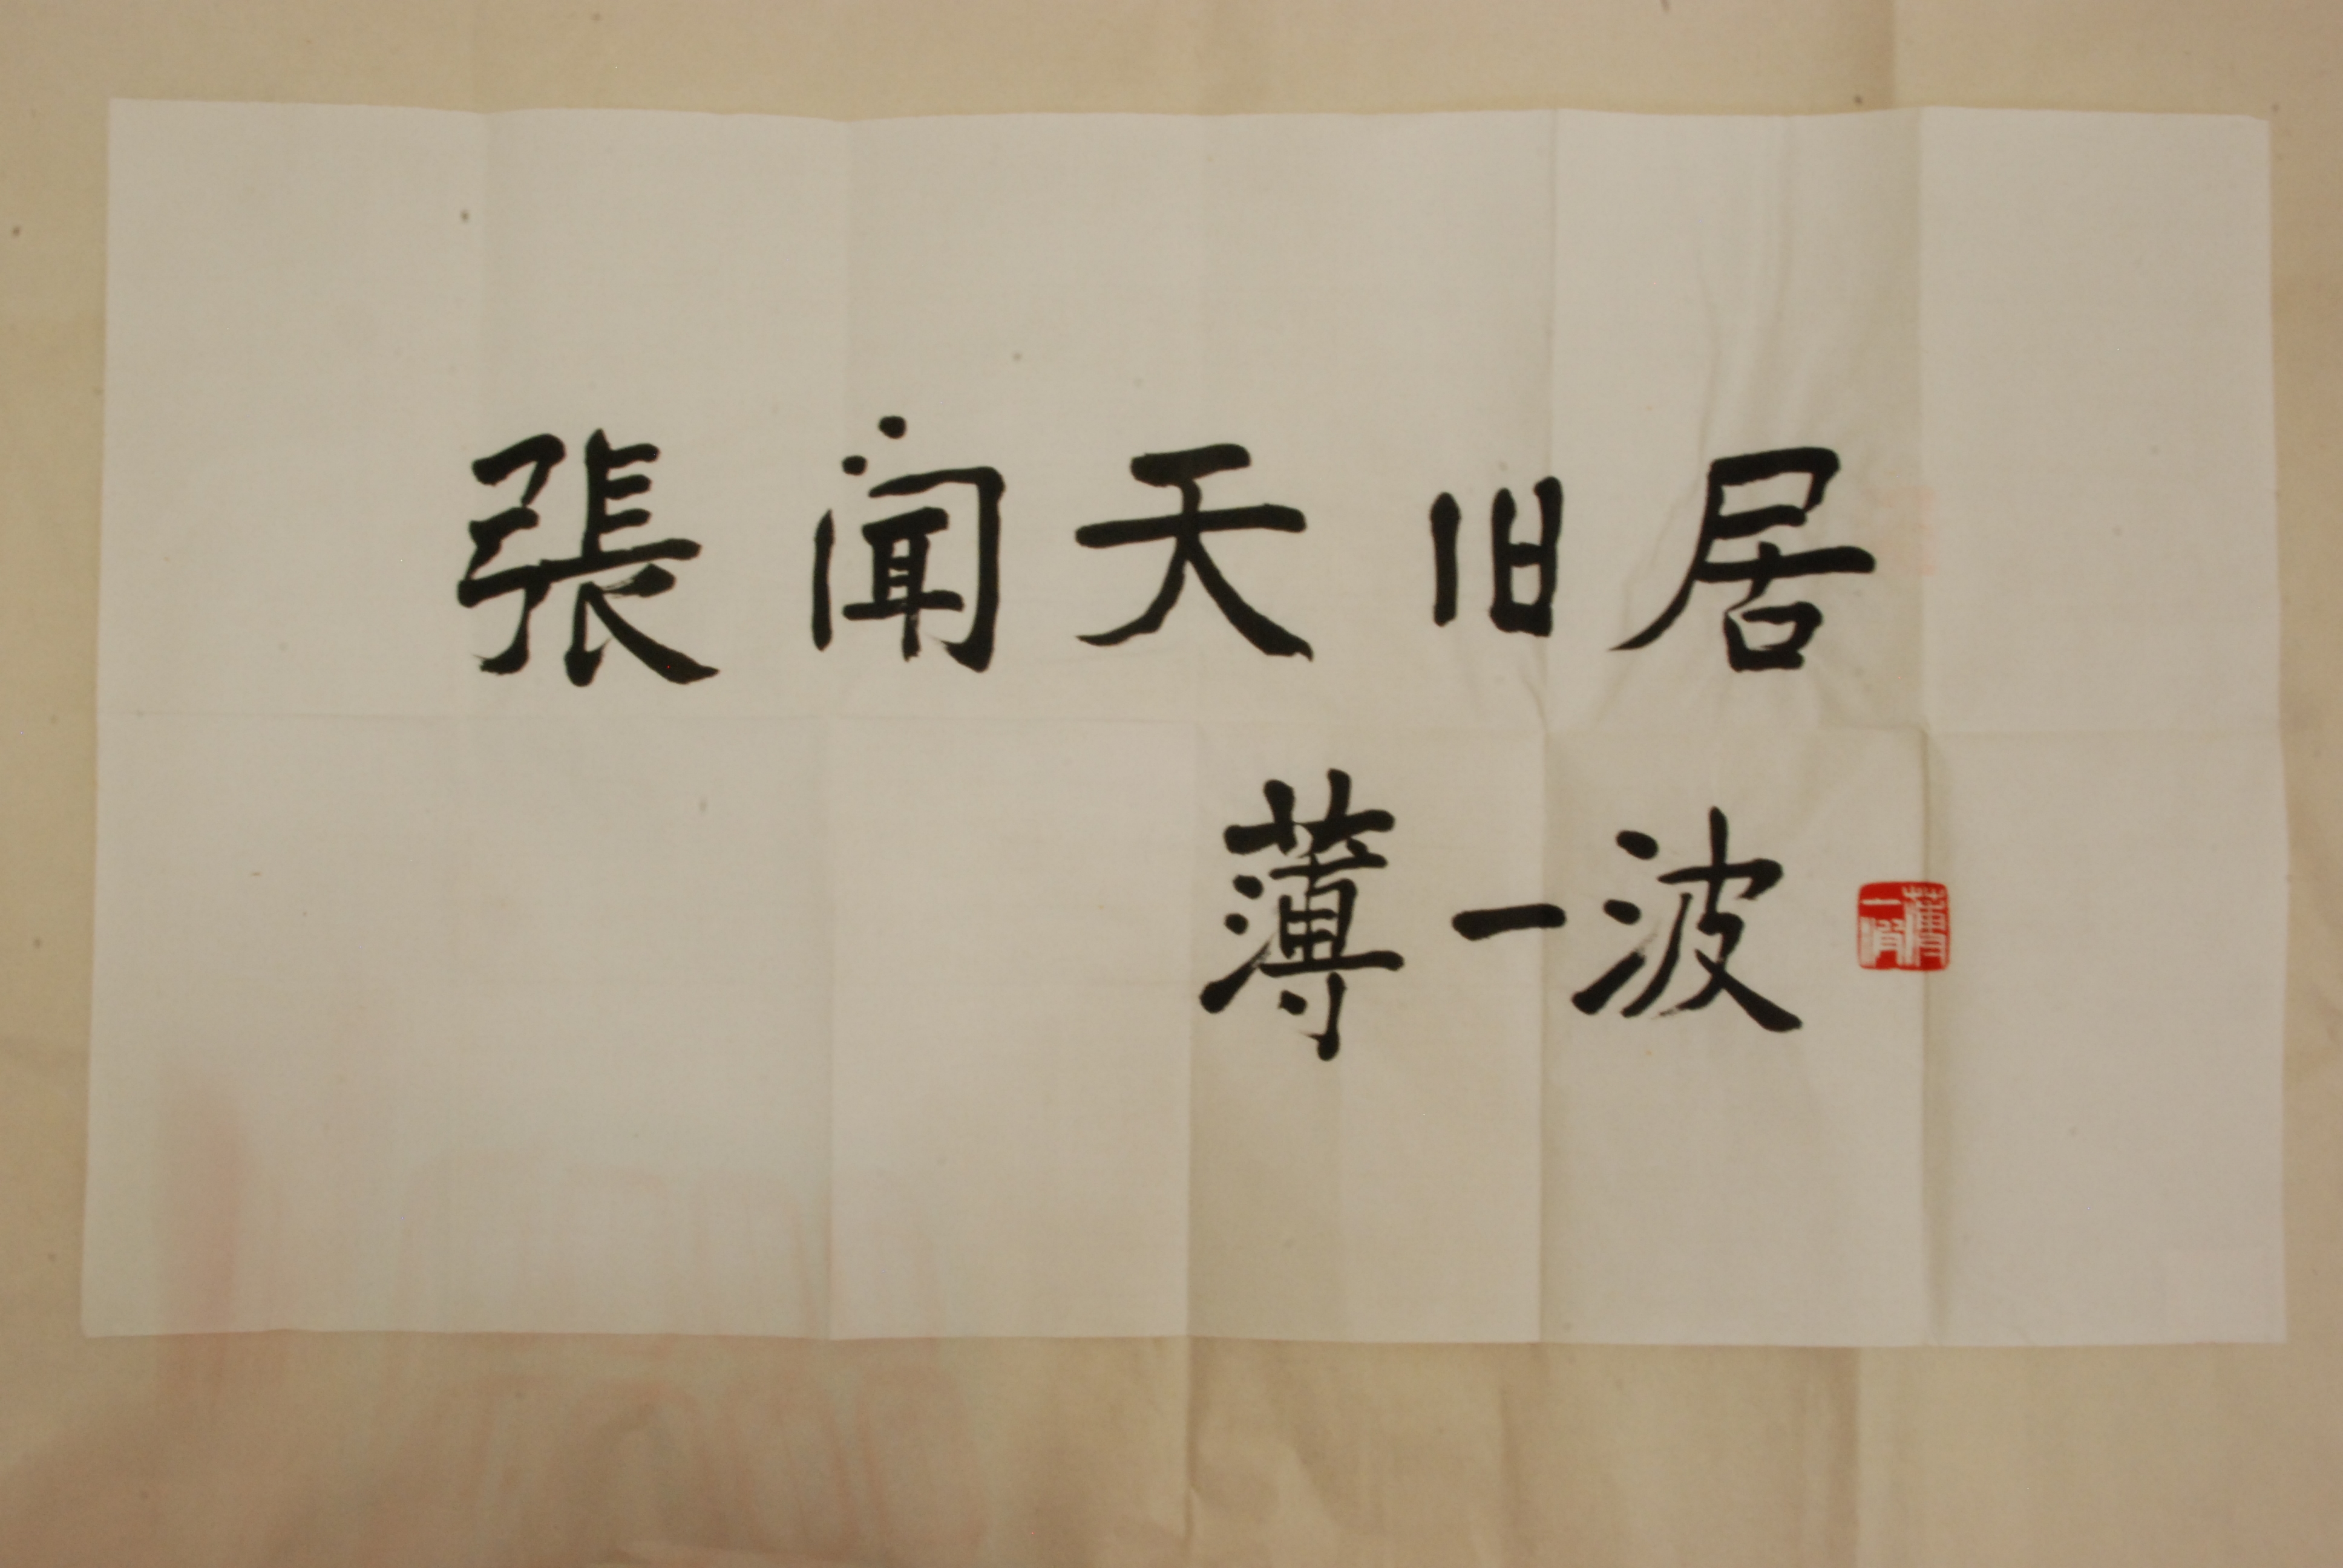 張闻天旧居
薄一波
薄一波